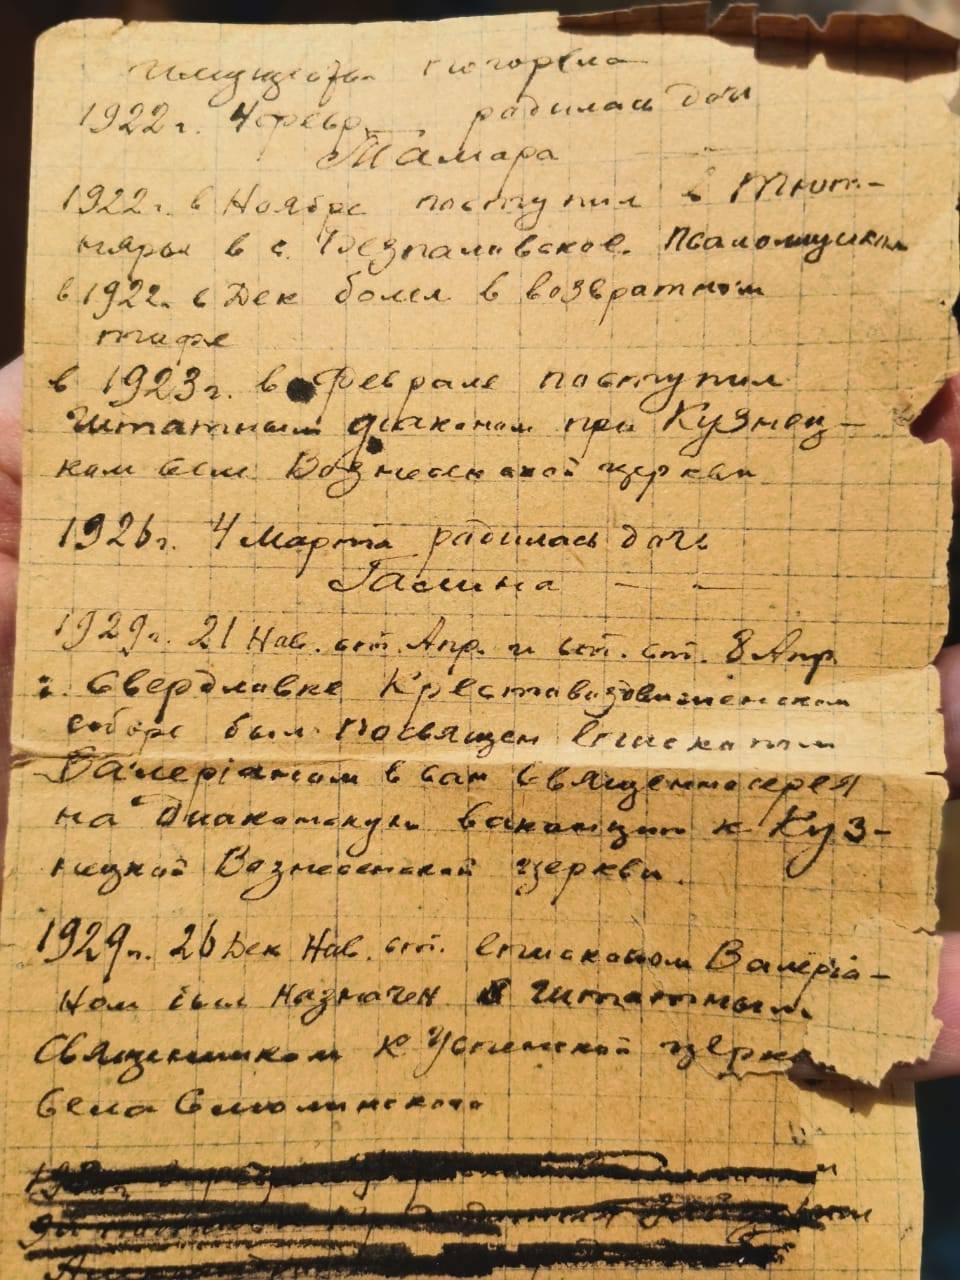 имущество погорело
1922 г. 4 февр. радилась дочь
Тамара — " —
1922 г. в Ноябре поступил в
в с. Безпаловское. Псаломщиком
в 1922 г. в Дек болел в возвратном
тифе
в 1923 г. в Феврале поступил
Штатным диаконом при Кузнец-
ком селе Вознесенской церкви
1926 г. 4 Марта радилась дочь
Галина — " —
1929 г. 21 Нов. ст. Апр. и ст. ст. 8 Апр
в Свердловке Крестовоздвиженском
соборе был Посвящен Епископом
Валеріаном в сан Священноіерея
на Диаконскую ваканцию к Куз-
нецкой Вознесенской церкви.
1929 г. 26 Дек Нов. ст. Епископом Валеріа-
ном был Назначен Штатным
Священником к Успенской церкви
села Смолинского